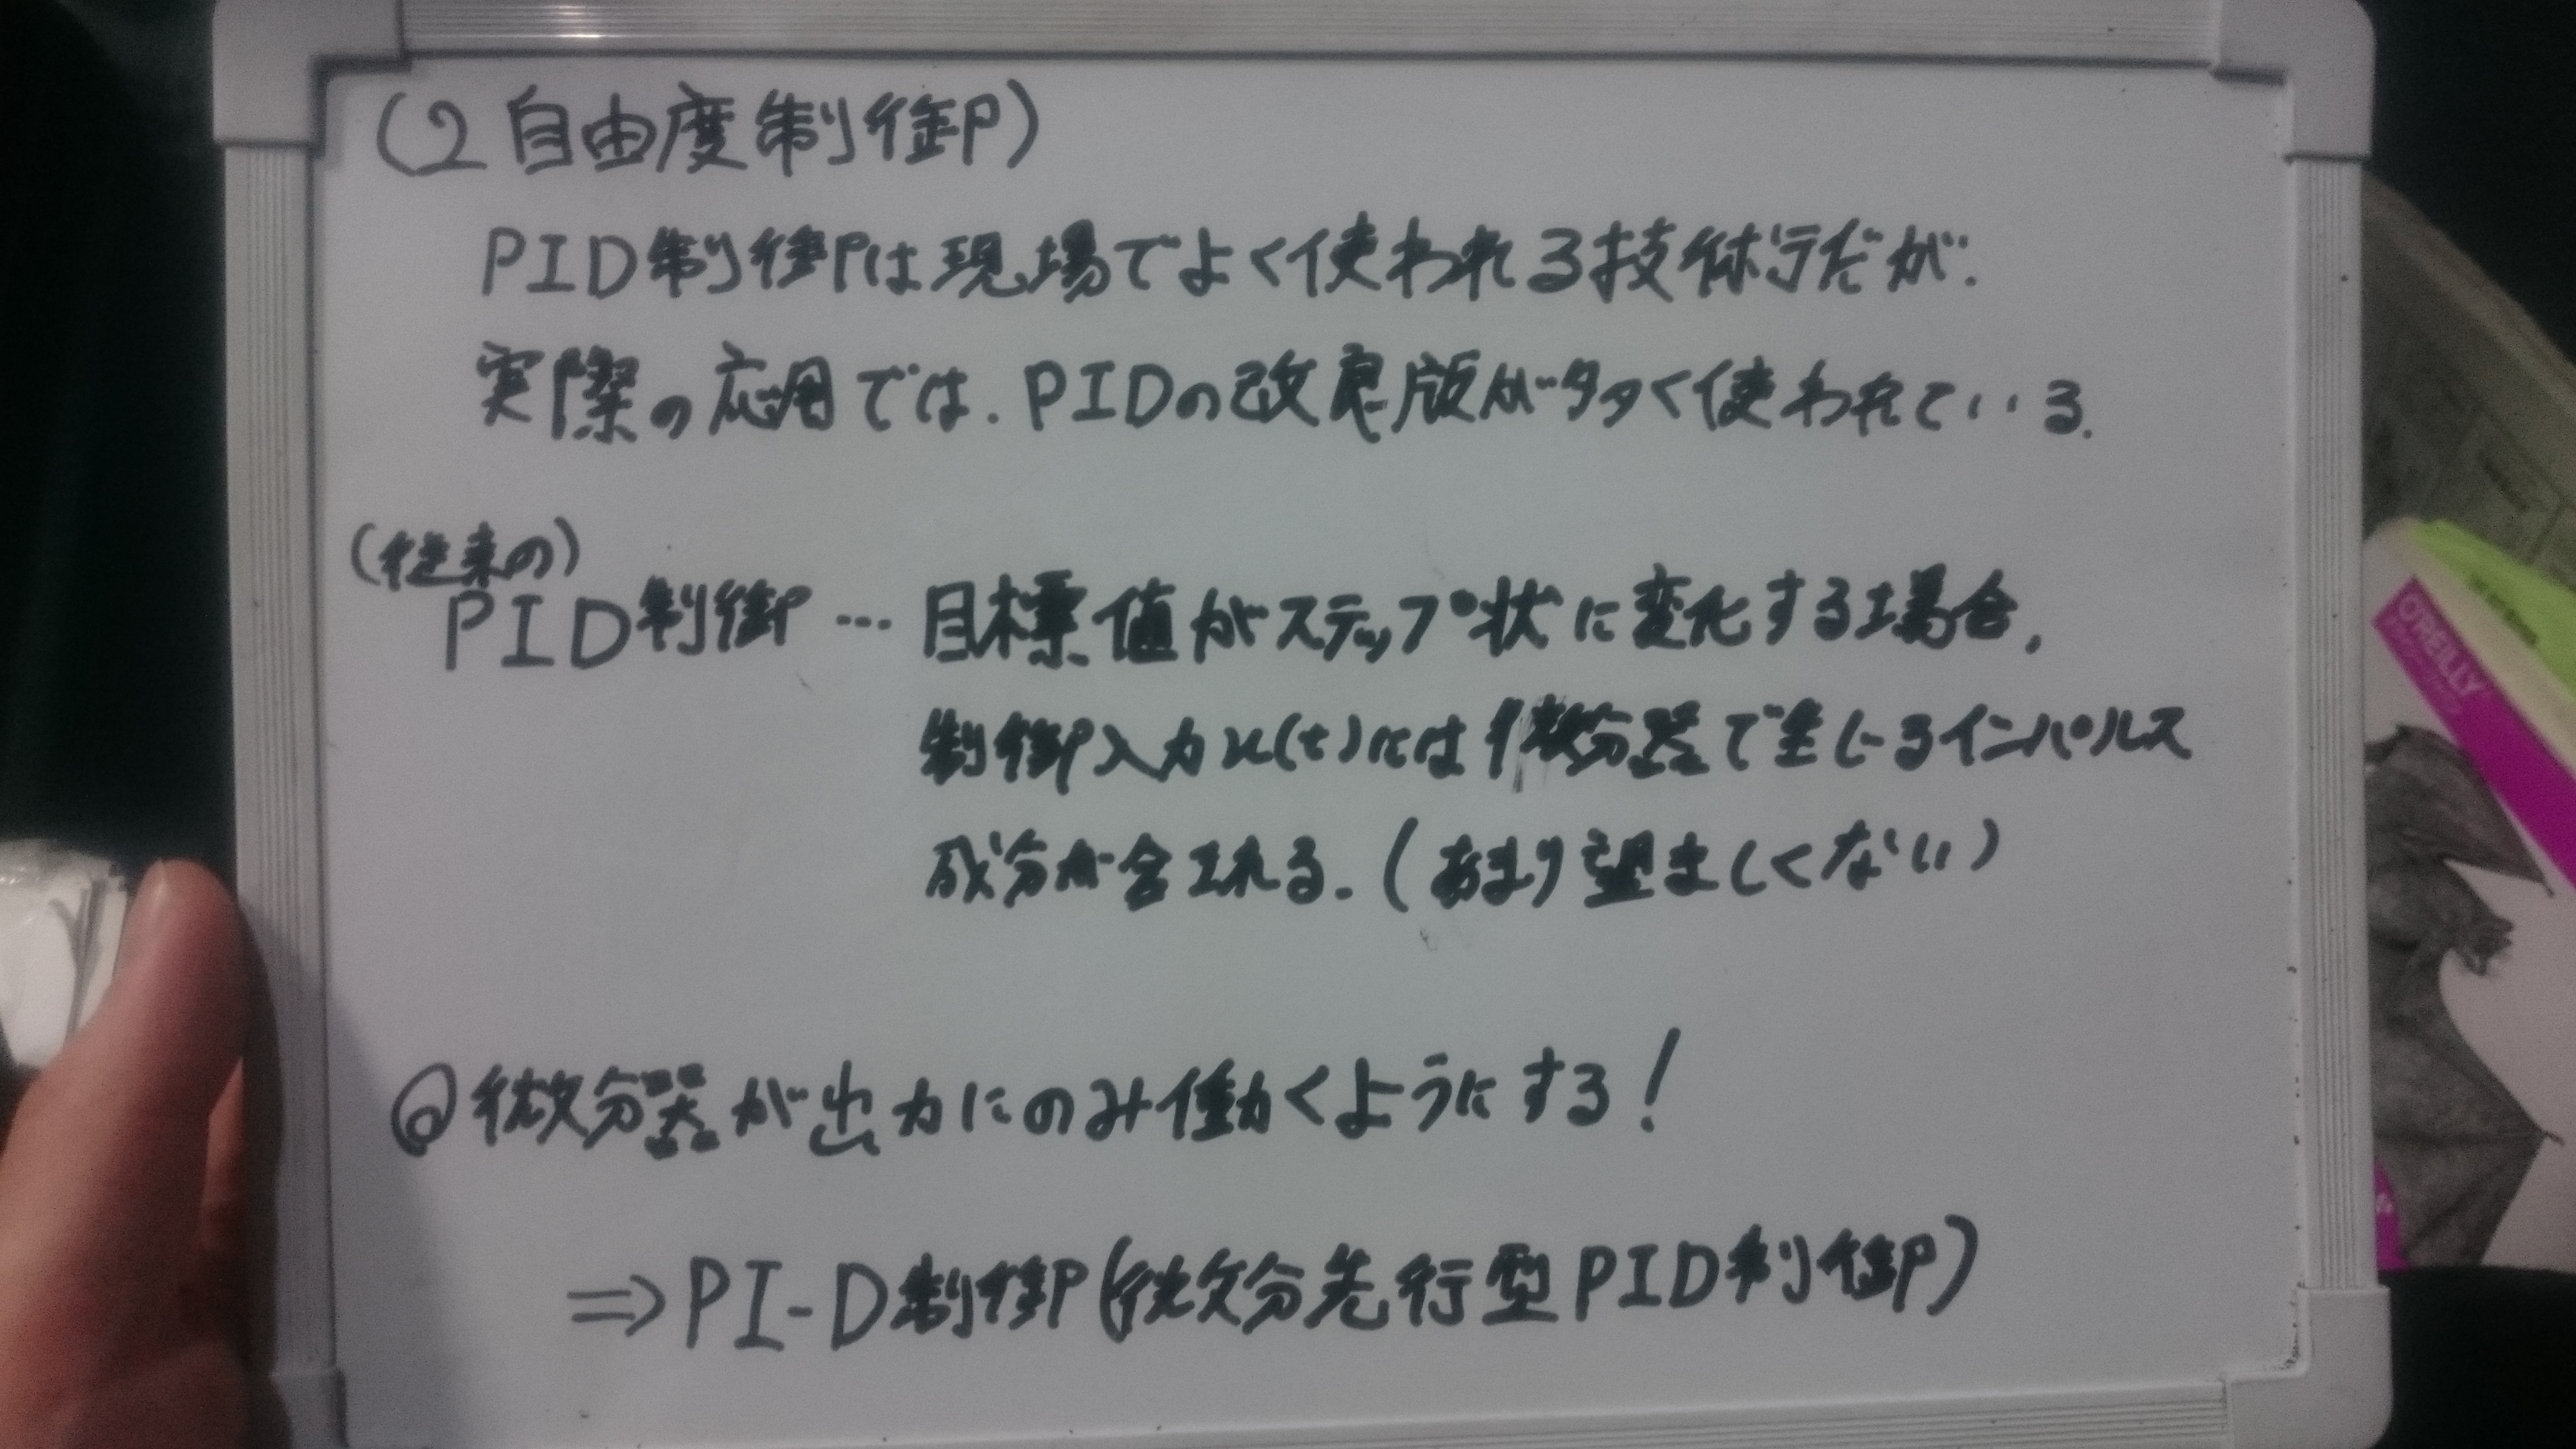 (2自由度制御)
PID制御は現場でよく使われる技術だが.
実際の応用では.PIDの改良版が多く使われている.
(従来の)
PID制御…目標値がステップ状に変化する場合,
制御入力u(t)には微分器で生じるインパルス
成分が含まれる.(あまり望ましくない)
◎微分器が出力にのみ働くようにする!
⇒PI-D制御(微分先行型PID制御)
O'REILLY